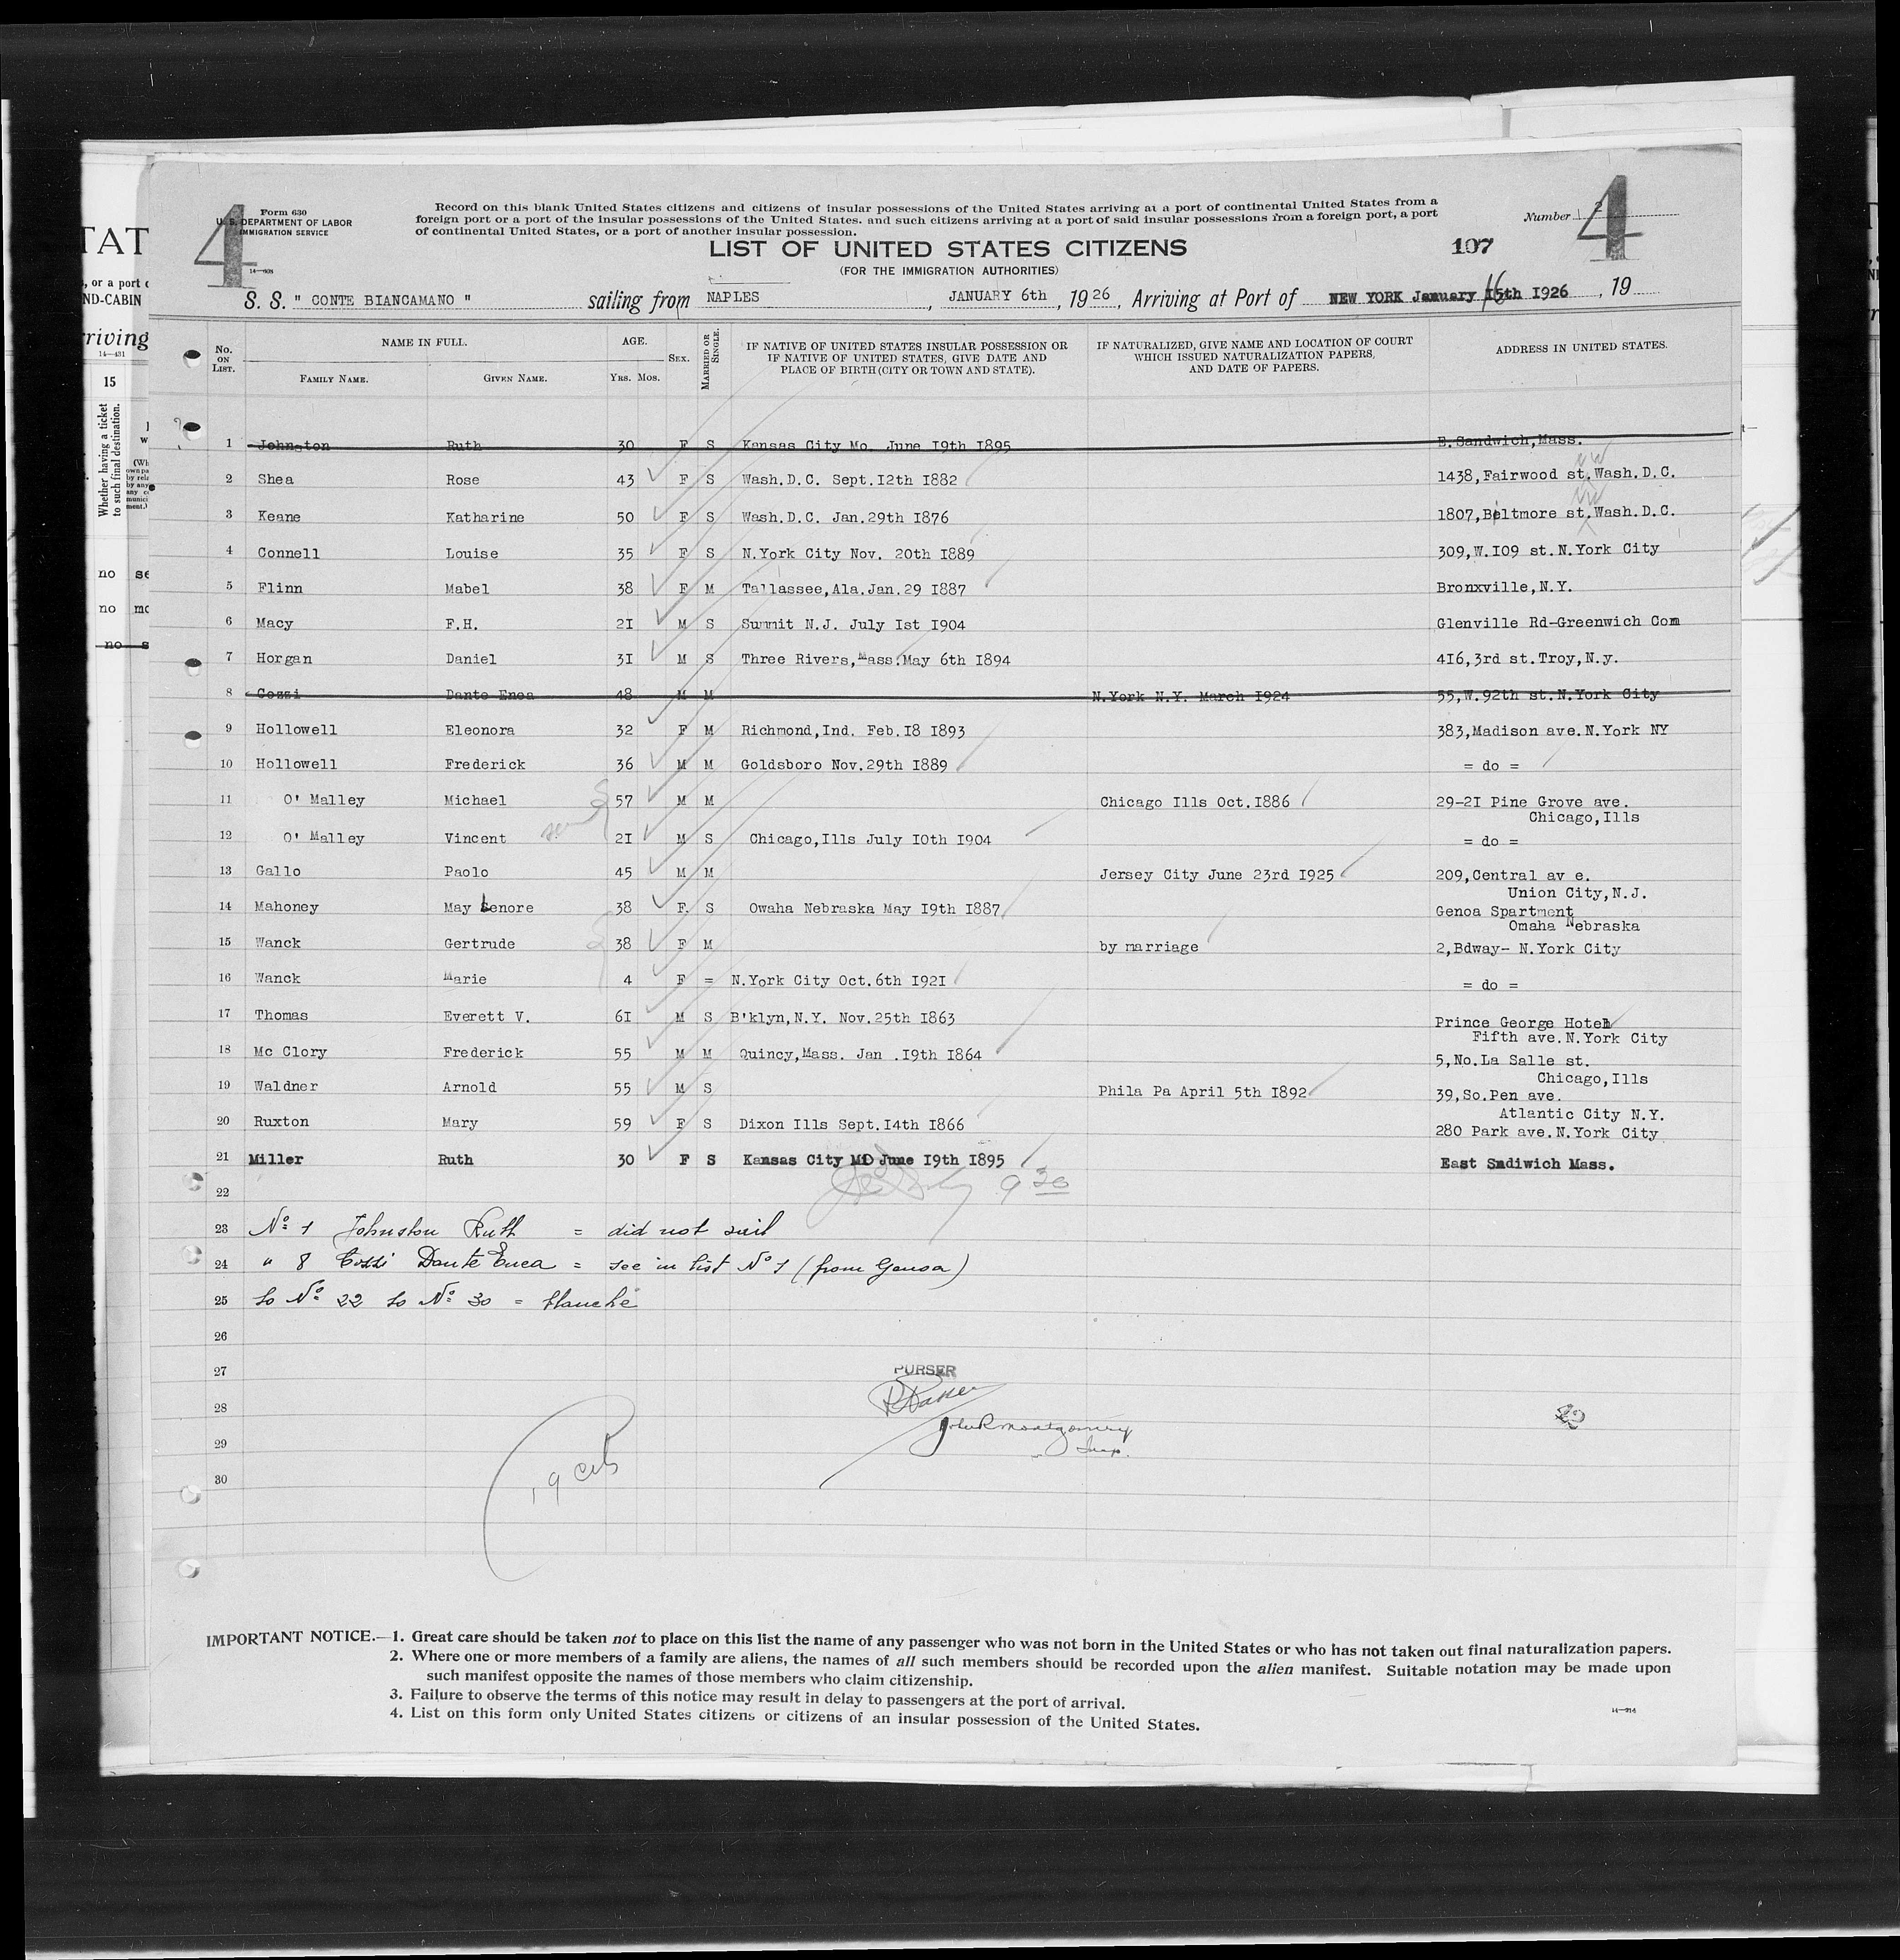 Form 630
U. S. DEPARTMENT OF LABOR
IMMIGRATION SERVICE
4
Record on this blank United States citizens and citizens of insular possessions of the United States arriving at a port of continental United States from a
foreign port or a port of the insular possessions of the United States. and such citizens arriving at a port of said insular possessions from a foreign port, a port
of continental United States, or a port of another insular possession.
Number 2
4
LIST OF UNITED STATES CITIZENS
107
(FOR THE IMMIGRATION AUTHORITIES)
S. S. " CONTE BIANCAMANO " sailing from NAPLES, JANUARY 6th, 1926, Arriving at Port of NEW YORK January 16th 1926, 19
No. ON LIST. NAME IN FULL. AGE. SEX. MARRIED OR SINGLE. IF NATIVE OF UNITED STATES INSULAR POSSESSION OR IF NATIVE OF UNITED STATES, GIVE DATE AND PLACE OF BIRTH (CITY OR TOWN AND STATE). IF NATURALIZED, GIVE NAME AND LOCATION OF COURT WHICH ISSUED NATURALIZATION PAPERS, AND DATE OF PAPERS. ADDRESS IN UNITED STATES.
FAMILY NAME. GIVEN NAME. YRS. MOS.
1 Johnston Ruth 30 F S Kansas City Mo. June 19th 1895 E.Sandwich,Mass.
2 Shea Rose 43 F S Wash.D.C. Sept.12th 1882 1438,Fairwood st.Wash.D.C.
3 Keane Katharine 50 F S Wash.D.C. Jan.29th 1876 1807,Biltmore st.Wash.D.C.
4 Connell Louise 35 F S N.York City Nov. 20th 1889 309,W.109 st.N.York City
5 Flinn Mabel 38 F M Tallassee,Ala.Jan.29 1887 Bronxville,N.Y.
6 Macy F.H. 21 M S Summit N.J. July 1st 1904 Glenville Rd-Greenwich Con
7 Horgan Daniel 31 M S Three Rivers,Mass.May 6th 1894 416,3rd st.Troy,N.y.
8 Cozzi Dante Enea 48 M M N.York N.Y. March 1924 55,W.92th st.N.York City
9 Hollowell Eleonora 32 F M Richmond,Ind. Feb.18 1893 383,Madison ave.N.York NY
10 Hollowell Frederick 36 M M Goldsboro Nov.29th 1889 = do =
11 O' Malley Michael 57 M M Chicago Ills Oct.1886 29-21 Pine Grove ave.
Chicago,Ills
12 O' Malley Vincent 21 M S Chicago,Ills July 10th 1904 = do =
13 Gallo Paolo 45 M M Jersey City June 23rd 1925 209,Central av e.
Union City,N.J.
14 Mahoney May Lenore 38 F. S Owaha Nebraska May 19th 1887 Genoa Spartment
Omaha Nebraska
15 Wanck Gertrude 38 F M by marriage 2,Bdway- N.York City
16 Wanck Marie 4 F = N.York City Oct.6th 1921 = do =
17 Thomas Everett V. 61 M S B'klyn,N.Y. Nov.25th 1863 Prince George Hotel
Fifth ave.N.York City
18 Mc Clory Frederick 55 M M Quincy,Mass. Jan .19th 1864 5,No.La Salle st.
Chicago,Ills
19 Waldner Arnold 55 M S Phila Pa April 5th 1892 39,So.Pen ave.
Atlantic City N.Y.
20 Ruxton Mary 59 F S Dixon Ills Sept.14th 1866 280 Park ave.N.York City
21 Miller Ruth 30 F S Kansas City MO June 19th 1895 East Sndiwich Mass.
22 9 30
23 No 1 Johnston Ruth = did not sail
24 " 8 Cozzi Dante Enea = see in list No 1 (from Genoa)
25 to No 22 to No 30 = blanche
26
27 PURSER
28 John R Montgomery
29 Insp.
30 19 cits
IMPORTANT NOTICE.—1. Great care should be taken not to place on this list the name of any passenger who was not born in the United States or who has not taken out final naturalization papers.
2. Where one or more members of a family are aliens, the names of all such members should be recorded upon the alien manifest. Suitable notation may be made upon
such manifest opposite the names of those members who claim citizenship.
3. Failure to observe the terms of this notice may result in delay to passengers at the port of arrival.
4. List on this form only United States citizens or citizens of an insular possession of the United States.
14—914
TAT
, or a port o
ND-CABIN
rriving
14—431
15
Whether having a ticket
to such final destination.
no se
no mo
no s